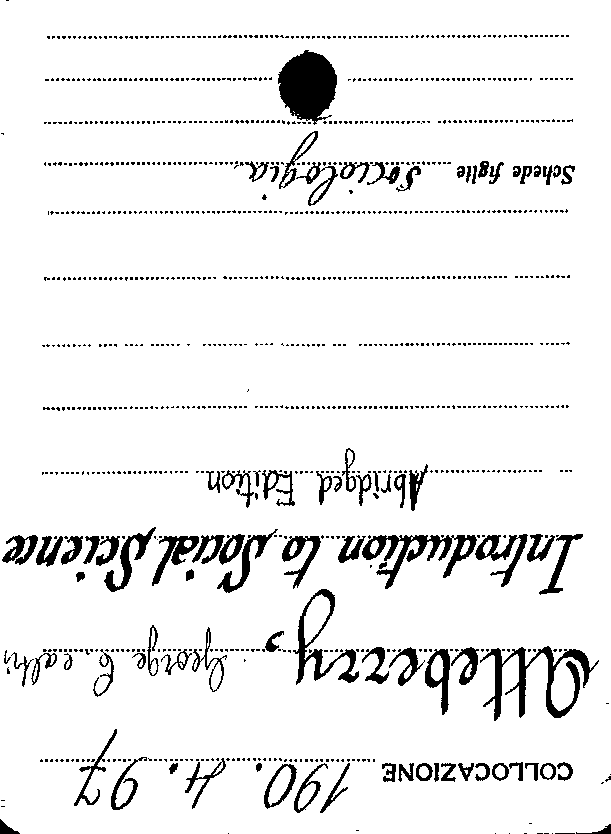 COLLOCAZIONE 190.4.97
Atteberry, George C. ealtri
Introduction to Social Science
Abridged Edition
Schede figlie Sociologia